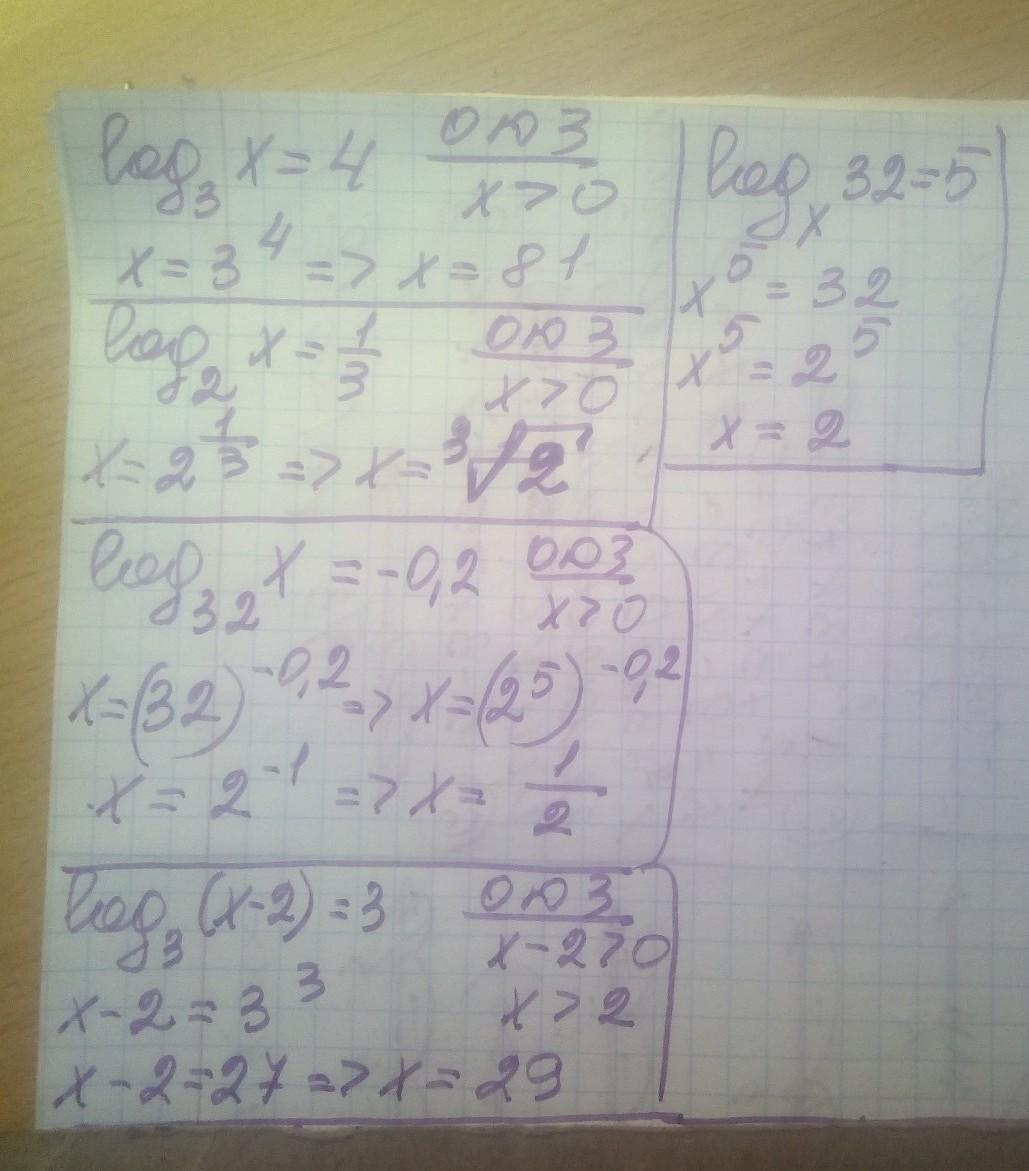 log₃ x = 4 ОЮЗ
x > 0
x = 3⁴ => x = 81
log₂ x = 1/3 ОЮЗ
x > 0
x = 2^(1/3) => x = ³√2
log₃₂ x = -0,2 ОЮЗ
x > 0
x = (32)^(-0,2) => x = (2⁵)^(-0,2)
x = 2⁻¹ => x = 1/2
log₃ (x-2) = 3 ОЮЗ
x - 2 > 0
x - 2 = 3³ x > 2
x - 2 = 27 => x = 29
logₓ 32 = 5
x⁵ = 32
x⁵ = 2⁵
x = 2